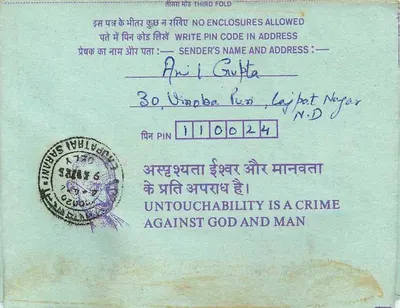 तीसरा मोड़ THIRD FOLD
इस पत्र के भीतर कुछ न रखिए NO ENCLOSURES ALLOWED
पते में पिन कोड लिखें WRITE PIN CODE IN ADDRESS
प्रेषक का नाम और पता :— SENDER'S NAME AND ADDRESS :—
Anil Gupta
30, Vinoba Puri, Lajpat Nagar
N.D
पिन PIN 110024
अस्पृश्यता ईश्वर और मानवता
के प्रति अपराध है।
UNTOUCHABILITY IS A CRIME
AGAINST GOD AND MAN